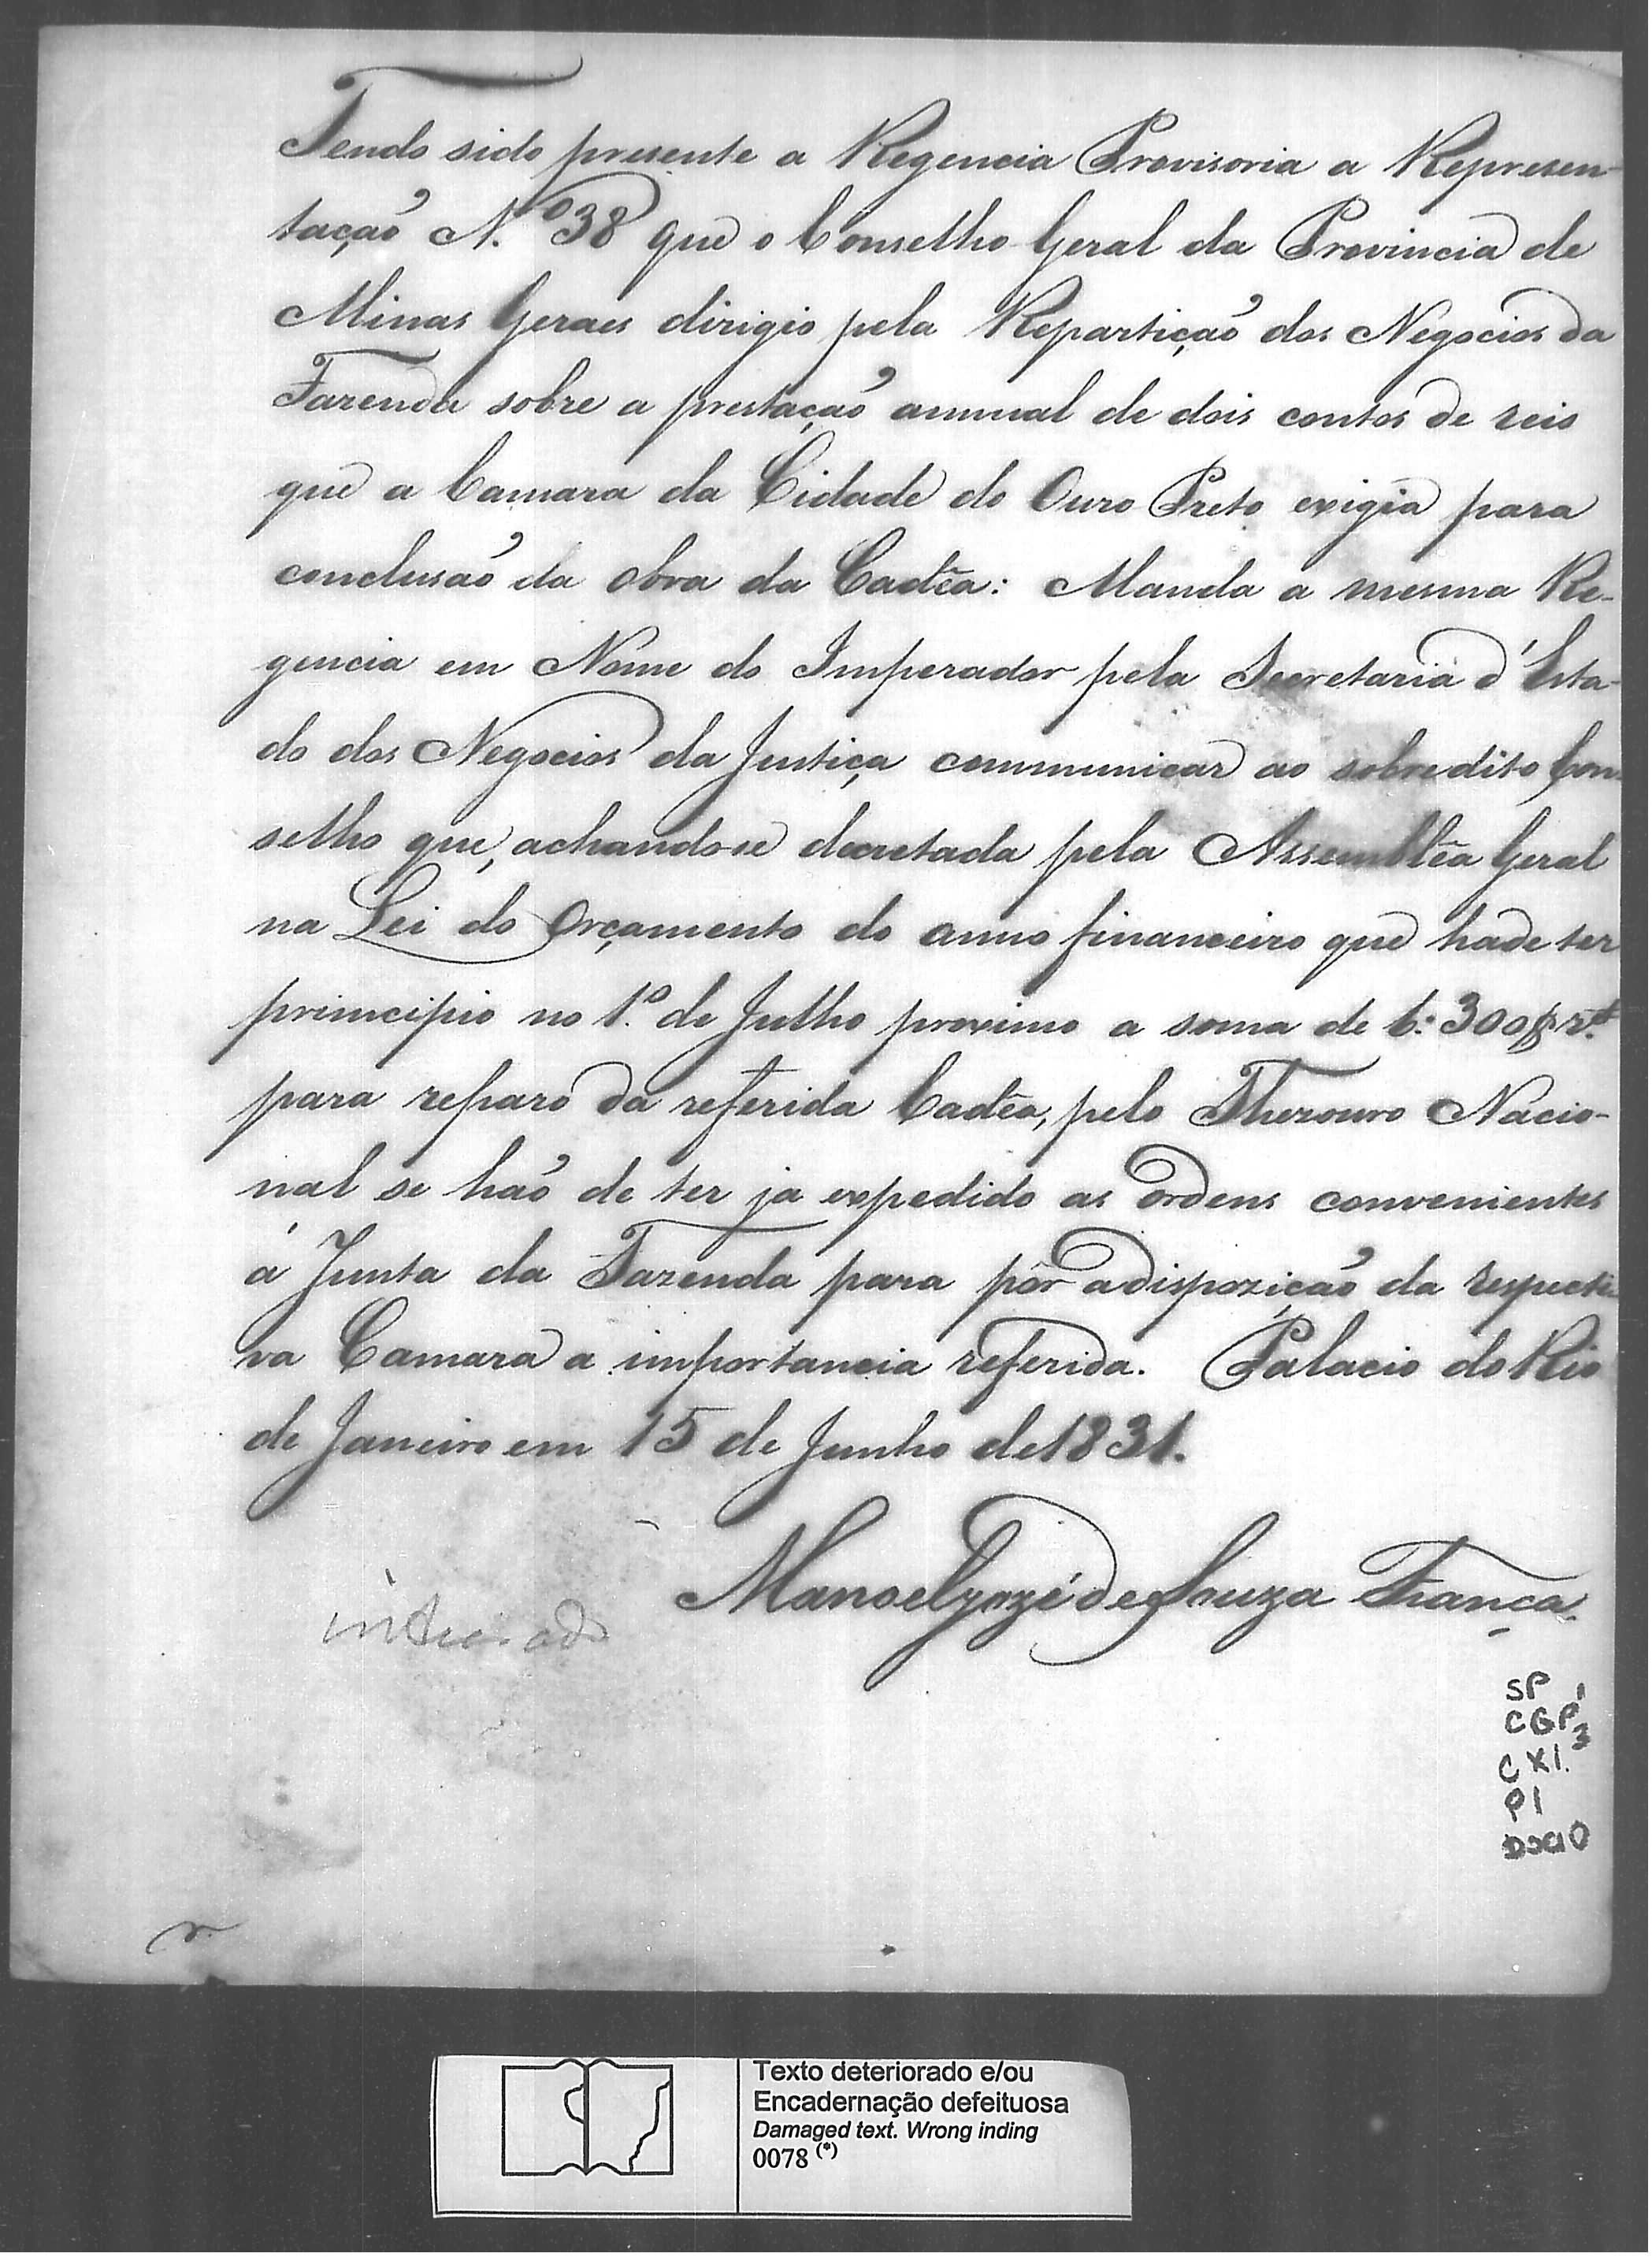 Tendo sido presente a Regencia Provisoria a Represen-
tação N.º 38 que o Conselho Geral da Provincia de
Minas Geraes dirigio pela Repartição dos Negocios da
Fazenda sobre a prestação annual de dois contos de reis
que a Camara da Cidade do Ouro Preto exigia para
conclusão da obra da Cadêa: Manda a mesma Re-
gencia em Nome do Imperador pela Secretaria d'Esta-
do dos Negocios da Justiça communicar ao sobredito Con-
selho que, achando-se decretada pela Assemblêa Geral
na Lei do Orçamento do anno financeiro que hade ter
principio no 1.º de Julho proximo a soma de 6:300$rs.
para reparo da referida Cadêa, pelo Thezouro Nacio-
nal se hão de ter ja expedido as ordens convenientes
á Junta da Fazenda para pôr adispozição da respecti
va Camara a importancia referida. Palacio do Rio
de Janeiro em 15 de Junho de 1831.
Manoel Jozé de Souza França
SP 1
CGP 3
CX1.
P1
Texto deteriorado e/ou
Encadernação defeituosa
Damaged text. Wrong inding
0078 (*)